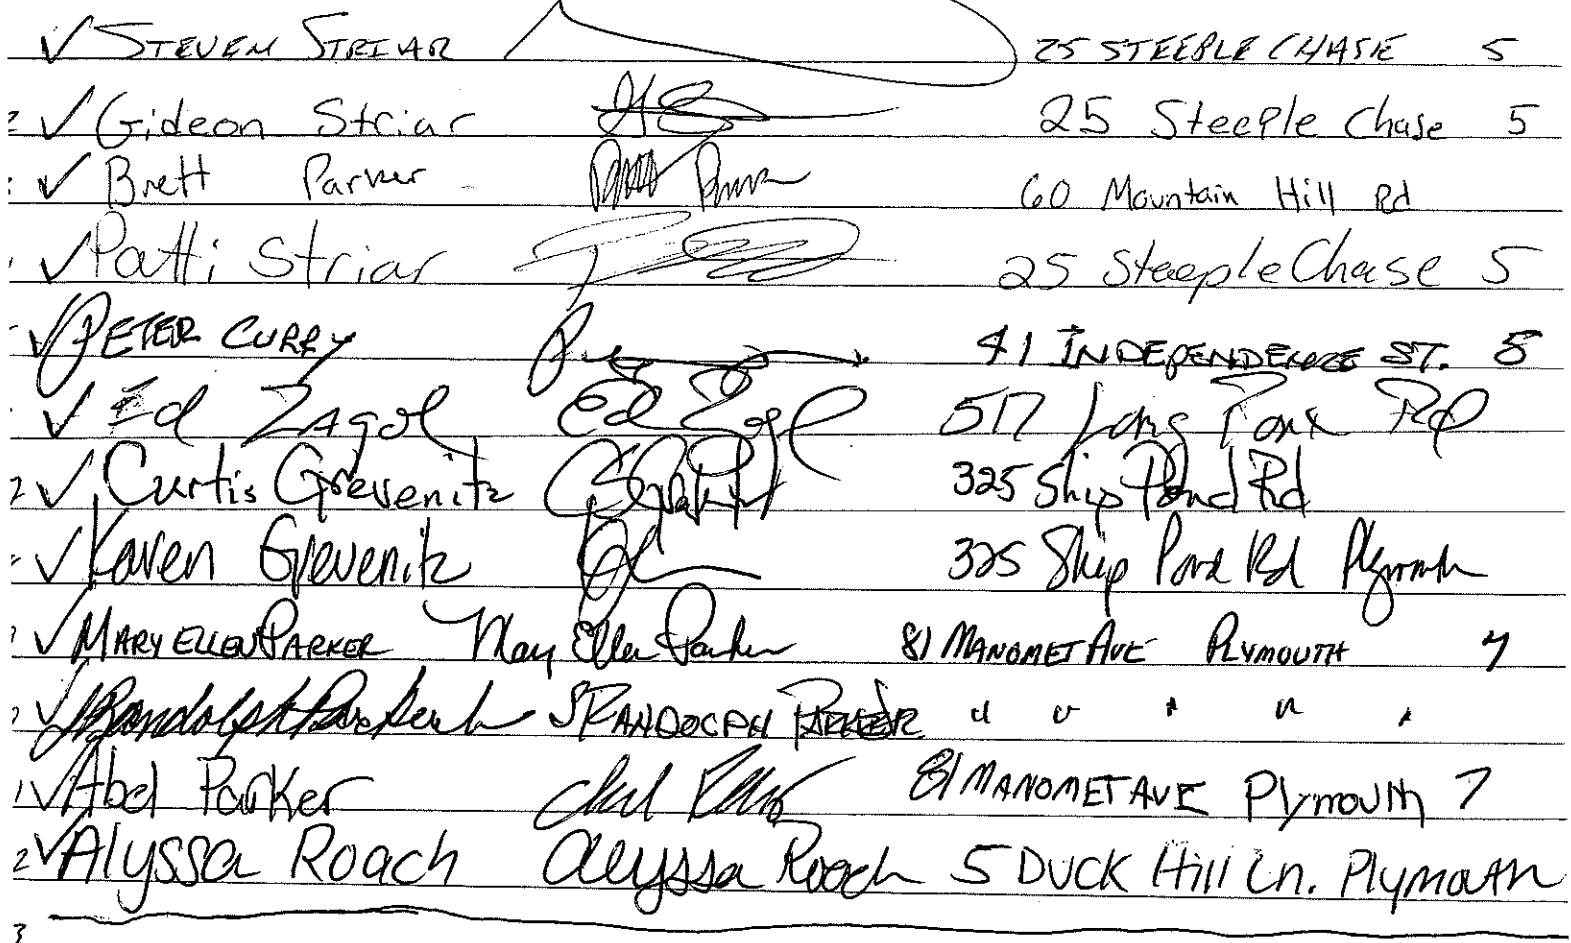 ✓ STEVEN STRIAR 25 STEEPLE CHASE 5
2 ✓ Gideon Striar 25 Steeple Chase 5
✓ Brett Parker 60 Mountain Hill Rd
✓ Patti Striar 25 Steeple Chase 5
✓ PETER CURRY 41 INDEPENDENCE ST. 5
✓ Ed Zagol Ed Zagol 517 Long Pond Rd
2 ✓ Curtis Grevenitz 325 Ship Pond Rd
✓ Karen Grevenitz 325 Ship Pond Rd Plymouth
✓ MARY ELLEN PARKER Mary Ellen Parker 81 MANOMET AVE PLYMOUTH 7
✓ J Randolph Parker J RANDOLPH PARKER " " " " "
1 ✓ Abel Parker 81 MANOMET AVE Plymouth 7
2 ✓ Alyssa Roach Alyssa Roach 5 DUCK Hill Ln. Plymouth
3